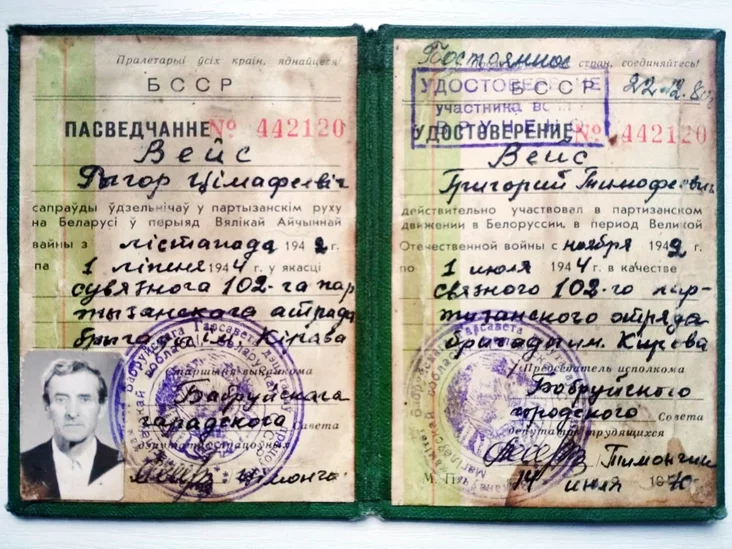 Пралетарыі ўсіх краін, яднайцеся!
БССР
ПАСВЕДЧАННЕ № 442120
Вейс
Рыгор Цімафеевіч
сапраўды ўдзельнічаў у партызанскім руху
на Беларусі ў перыяд Вялікай Айчыннай
вайны з лістапада 1942 г.
па 1 ліпеня 1944 г. у якасці
сувязнога 102-га пар
тызанскага атрада
брыгады ім. Кірава
Старшыня выканкома
Бабруйскага
гарадскога Савета
дэпутатаў працоўных
Постоянное
стран, соединяйтесь!
УДОСТОВЕРЕНИЕ
участника
БССР
УДОСТОВЕРЕНИЕ № 442120
Вейс
Григорий Тимофеевич
действительно участвовал в партизанском
движении в Белоруссии, в период Великой
Отечественной войны с ноября 1942 г.
по 1 июля 1944 г. в качестве
связного 102-го пар
тизанского отряда
бригады им. Кирова
Председатель исполкома
Бобруйского
городского Совета
депутатов трудящихся
Тимончик
М. П. 14 июля 1970